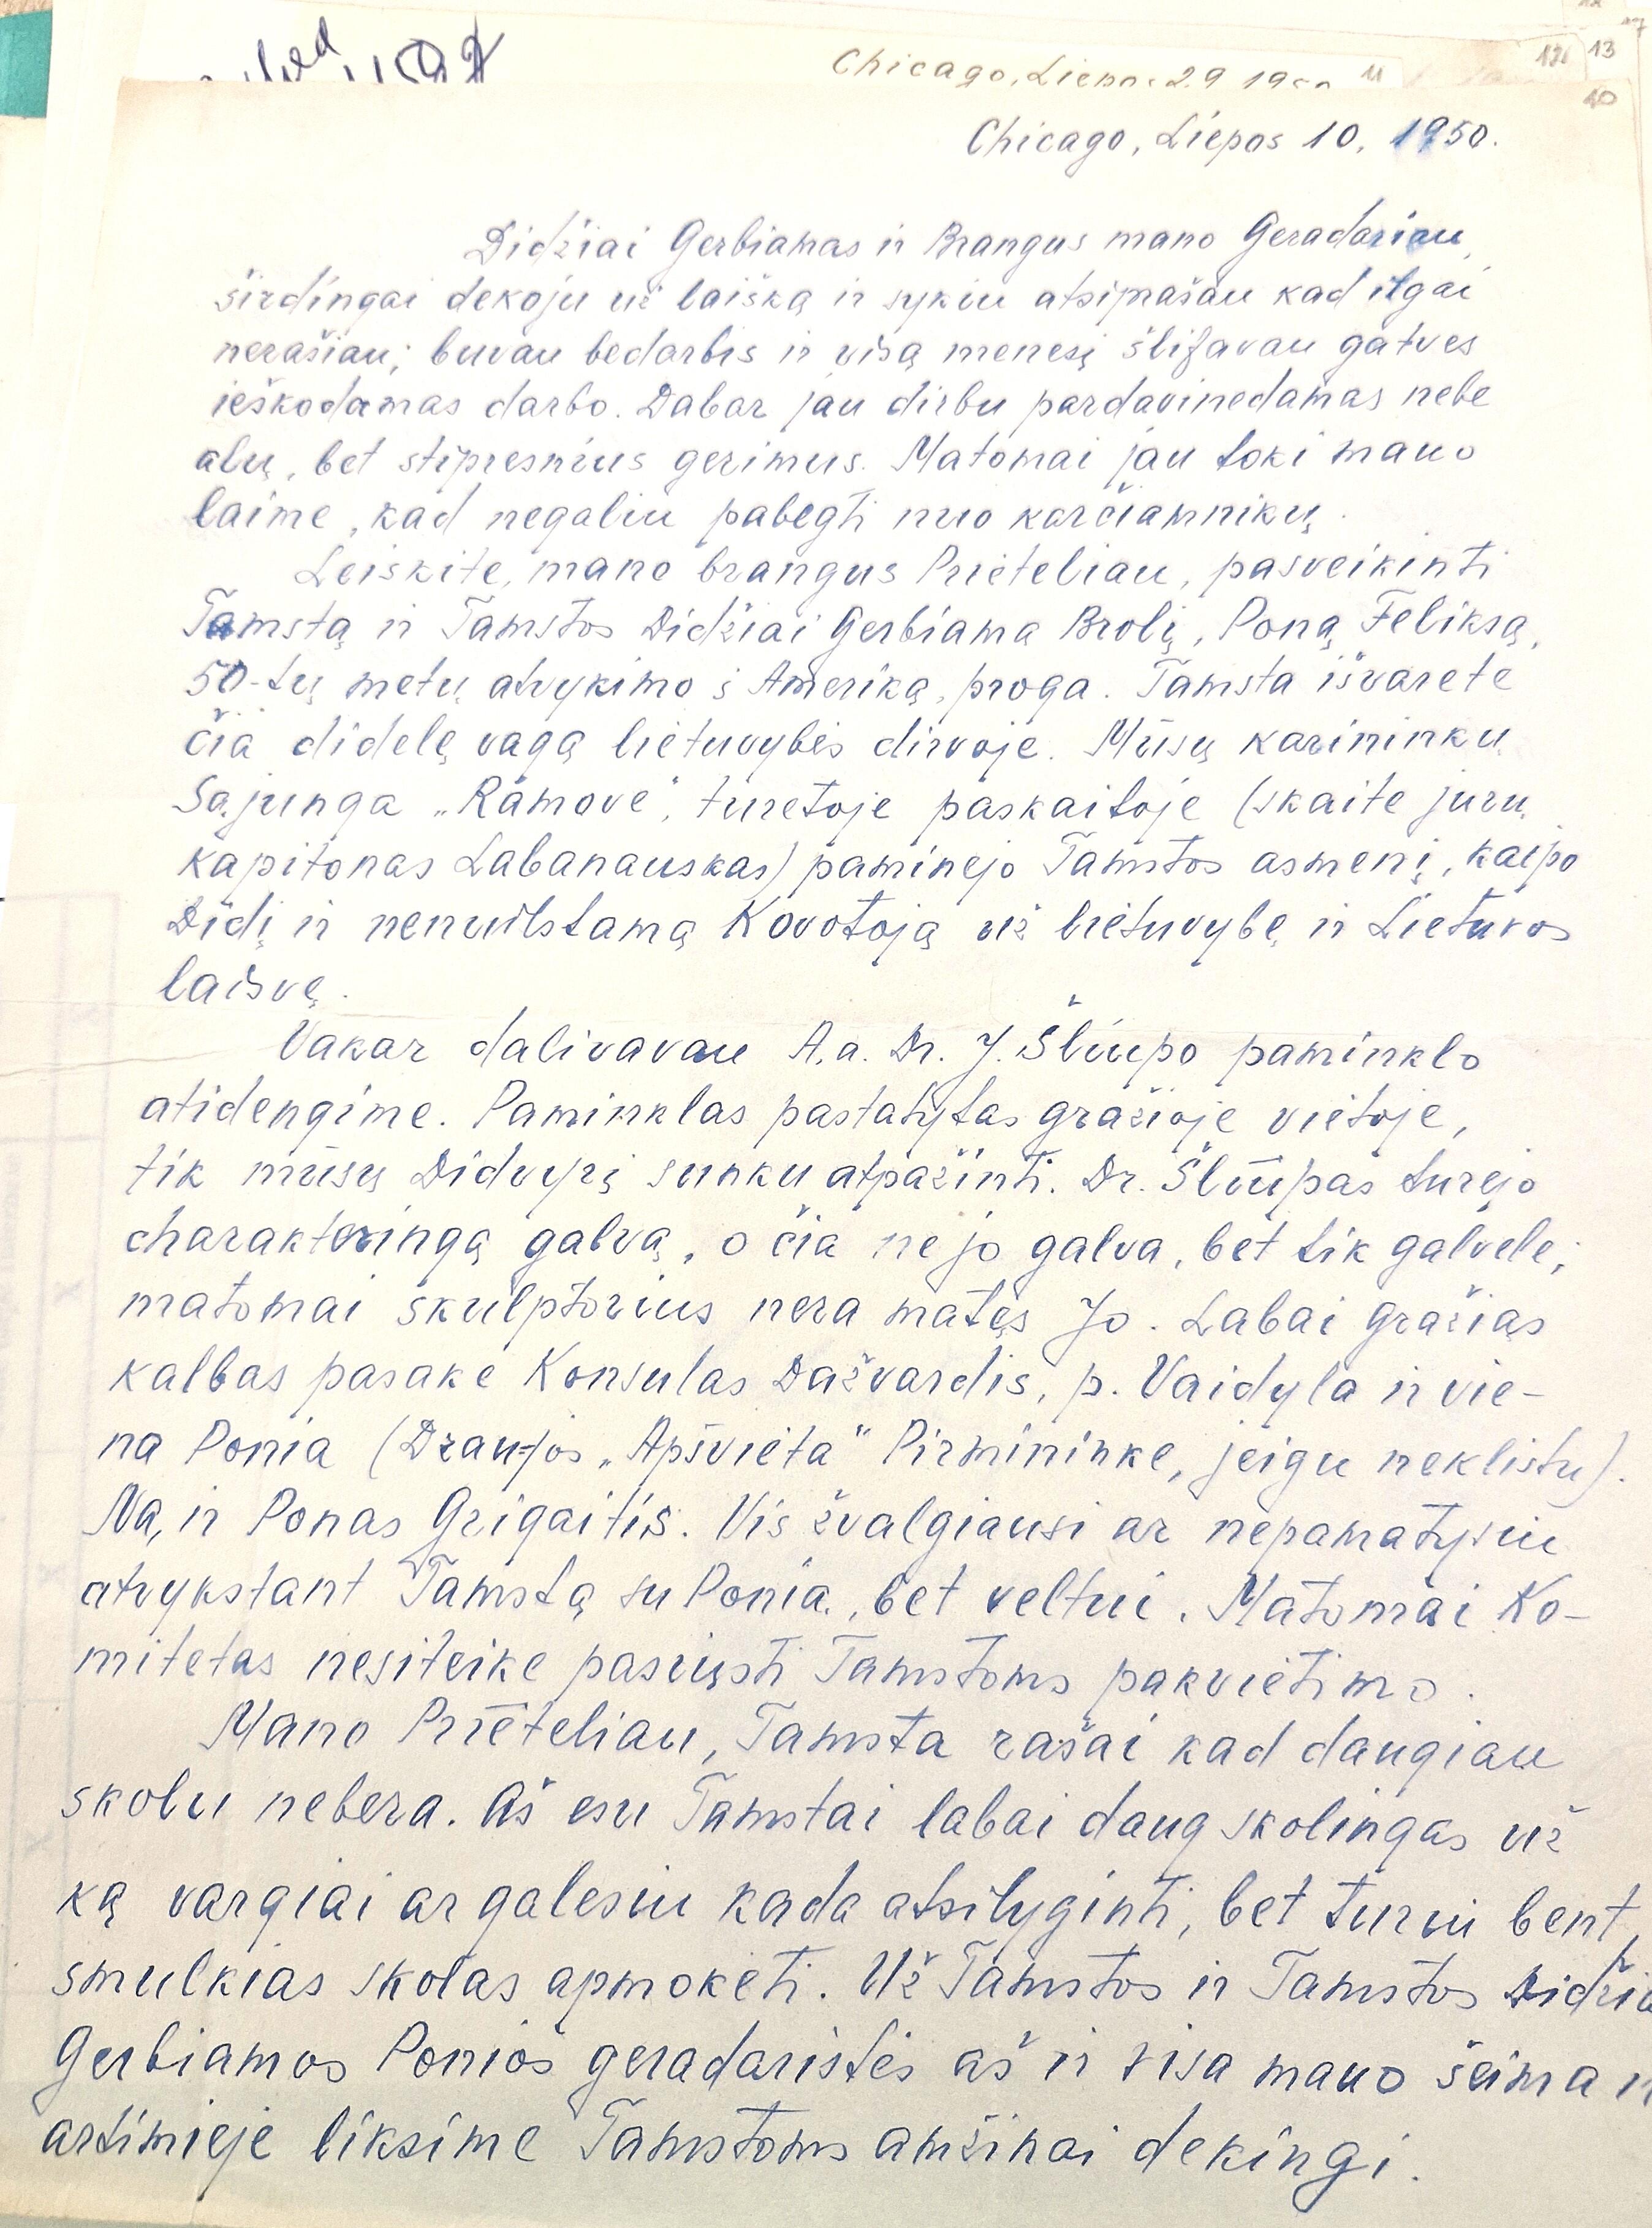 Chicago, Liepos 29 19
11
13
40
Chicago, Liepos 10, 1950.
Didžiai Gerbiamas ir Brangus mano Geradariau,
širdingai dekoju už laišką ir sykiu atsiprašau kad ilgai
nerašiau; buvau bedarbis ir visą menesį šlifavau gatves
ieškodamas darbo. Dabar jau dirbu pardavinedamas nebe
alų, bet stipresnius gerimus. Matomai jau toki mano
laime, kad negaliu pabegti nuo karčiamnikų.
Leiskite, mano brangus Prieteliau, pasveikinti
Tamstą ir Tamstos Didžiai Gerbiama Brolį, Poną Feliksą,
50-tų metų atvykimo į Ameriką, proga. Tamsta išvarete
čia didelę vagą lietuvybės dirvoje. Mūsų karininkų
Sąjunga „Ramove", turetoje paskaitoje (skaite jurų
kapitonas Labanauskas) paminejo Tamstos asmenį, kaipo
Didį ir nenuilstamą Kovotoją už lietuvybę ir Lietuvos
laisvę.
Vakar dalivavau A.a. Dr. J. Šliupo paminklo
atidengime. Paminklas pastatytas gražioje vietoje,
tik mūsų Didvyrį sunku atpažinti. Dr. Šliupas turejo
charakteringą galvą, o čia ne jo galva, bet tik galvele;
matomai skulptorius nera matęs Jo. Labai gražias
kalbas pasake Konsulas Dažvardis, p. Vaidyla ir vie-
na Ponia (Draujos „Apšvieta" Pirmininke, jeigu neklistu).
Na, ir Ponas Grigaitis. Vis žvalgiausi ar nepamatysiu
atvykstant Tamstą su Ponia, bet veltui. Matomai Ko-
mitetas nesiteike pasiųsti Tamstoms pakvietimo.
Mano Prieteliau, Tamsta rašai kad daugiau
skolu nebera. Aš esu Tamstai labai daug skolingas už
ką vargiai ar galesiu kada atsilyginti, bet turiu bent
smulkias skolas apmoketi. Už Tamstos ir Tamstos Didžia
Gerbiamos Ponios geradaristės aš ir visa mano šeima ir
artimieje liksime Tamstoms amžinai dekingi.